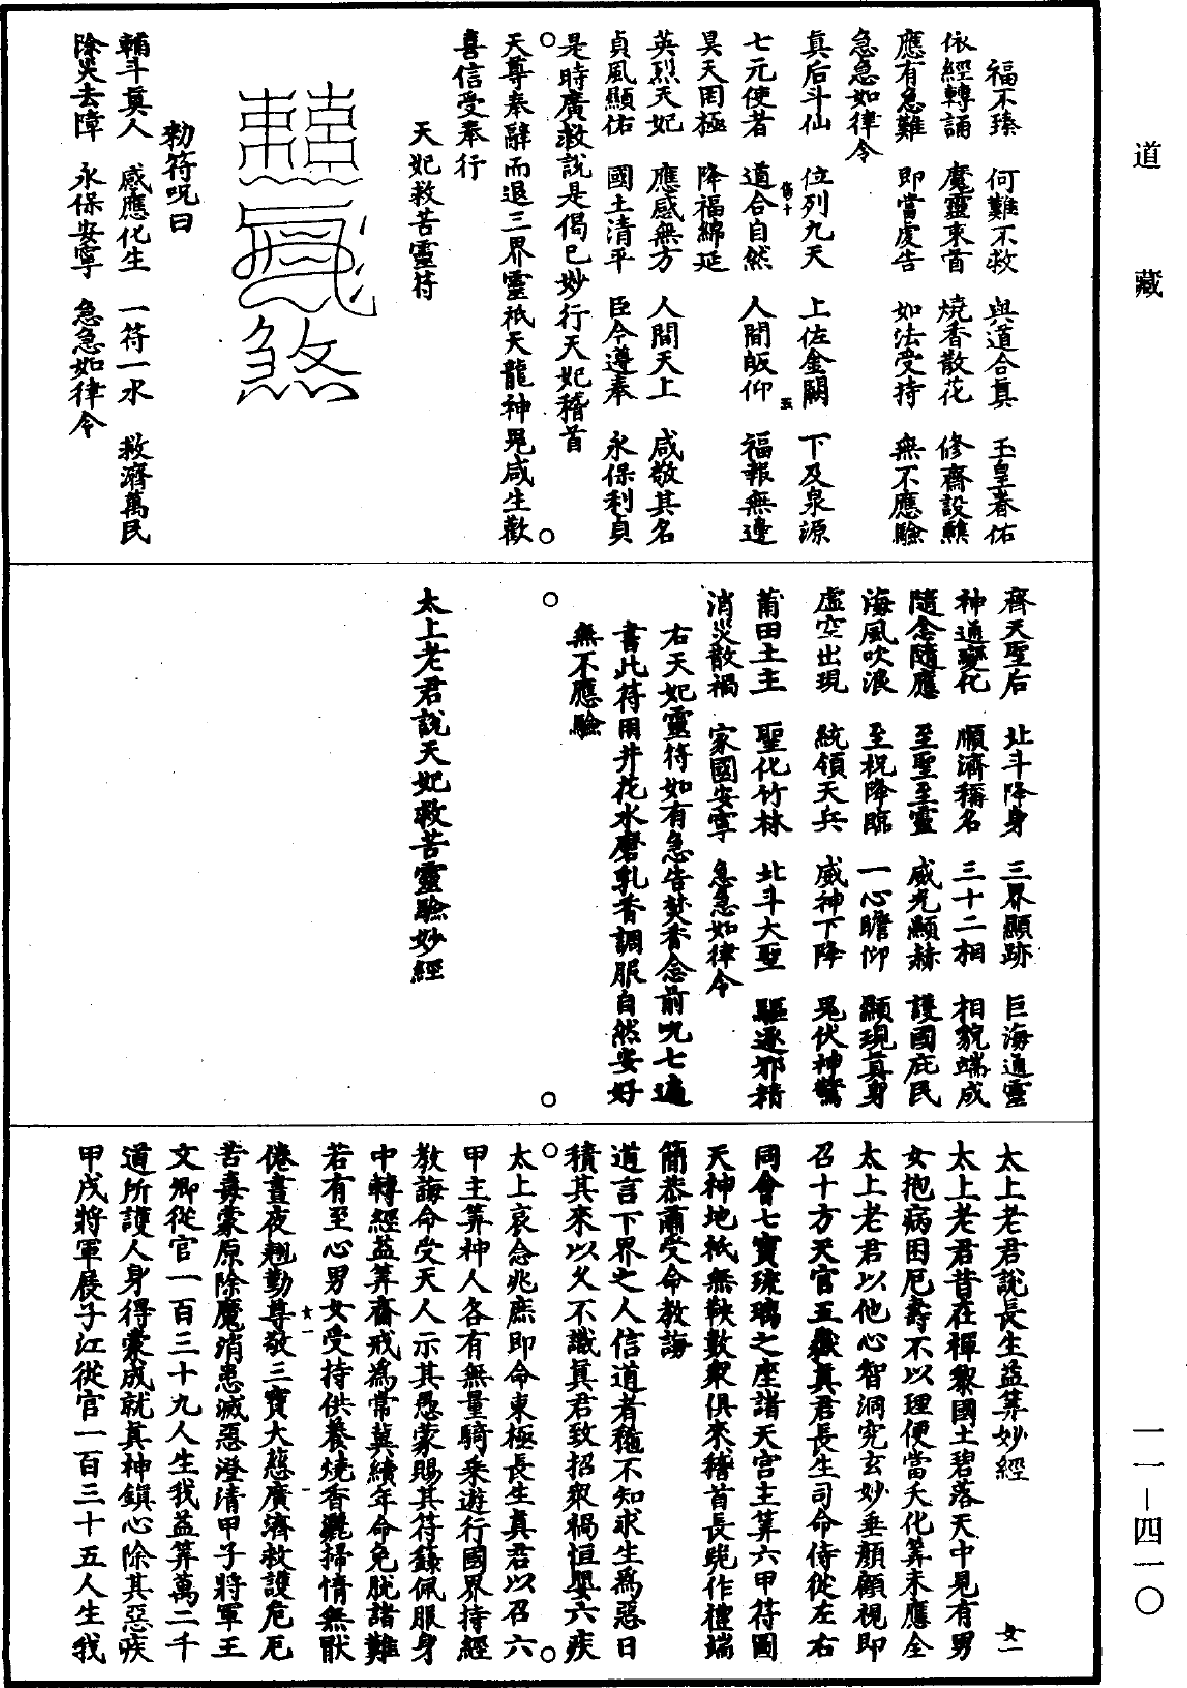 道藏
福不臻　何難不救　與道合真　玉皇眷佑
依經轉誦　魔靈束首　燒香散花　修齋設醮
應有急難　即當虔告　如法受持　無不應驗
急急如律令
真后斗仙　位列九天　上佐金闕　下及泉源
七元使者　道合自然　人間皈仰　福報無邊
昊天罔極　降福綿延
英烈天妃　應感無方　人間天上　咸敬其名
貞風顯佑　國土清平　臣今遵奉　永保利貞
是時廣救說是偈已妙行天妃稽首
天尊奉辭而退三界靈祇天龍神鬼咸生歡
喜信受奉行
天妃救苦靈符
勑符呪曰
輔斗真人　感應化生　一符一水　救濟萬民
除災去障　永保安寧　急急如律令
齊天聖后　北斗降身　三界顯跡　巨海通靈
神通變化　順濟稱名　三十二相　相貌端成
隨念隨應　至聖至靈　威光顯赫　護國庇民
海風吹浪　至祝降臨　一心瞻仰　顯現真身
虛空出現　統領天兵　威神下降　鬼伏神驚
莆田土主　聖化竹林　北斗大聖　驅逐邪精
消災散禍　家國安寧　急急如律令
右天妃靈符如有急告焚香念前呪七遍
書此符用井花水磨乳香調服自然安好
無不應驗
太上老君說天妃救苦靈驗妙經
太上老君說長生益筭妙經　女一
太上老君昔在禪黎國土碧落天中見有男
女抱病困厄壽不以理便當夭化筭未應全
太上老君以他心智洞究玄妙垂顏顧視即
召十方天官五嶽真君長生司命侍從左右
同會七寶琉璃之座諸天宮主筭六甲符圖
天神地祇無鞅數眾俱來稽首長跪作禮端
簡恭肅受命教誨
道言下界之人信道者稀不知求生為惡日
積其來以久不識真君致招眾禍恒嬰六疾
太上哀念兆庶即命東極長生真君以召六
甲主筭神人各有無量騎乘遊行國界持經
教誨命受天人示其愚蒙賜其符籙佩服身
中轉經益筭齋戒為常冀續年命免脫諸難
若有至心男女受持供養燒香灑掃情無猒
倦晝夜翹勤尊敬三寶大慈廣濟救護危厄
苦毒蒙原除魔消患滅惡澄清甲子將軍王
文卿從官一百三十九人生我益筭萬二千
道所護人身得蒙成就真神鎮心除其惡疾
甲戌將軍展子江從官一百三十五人生我
一一－四一〇